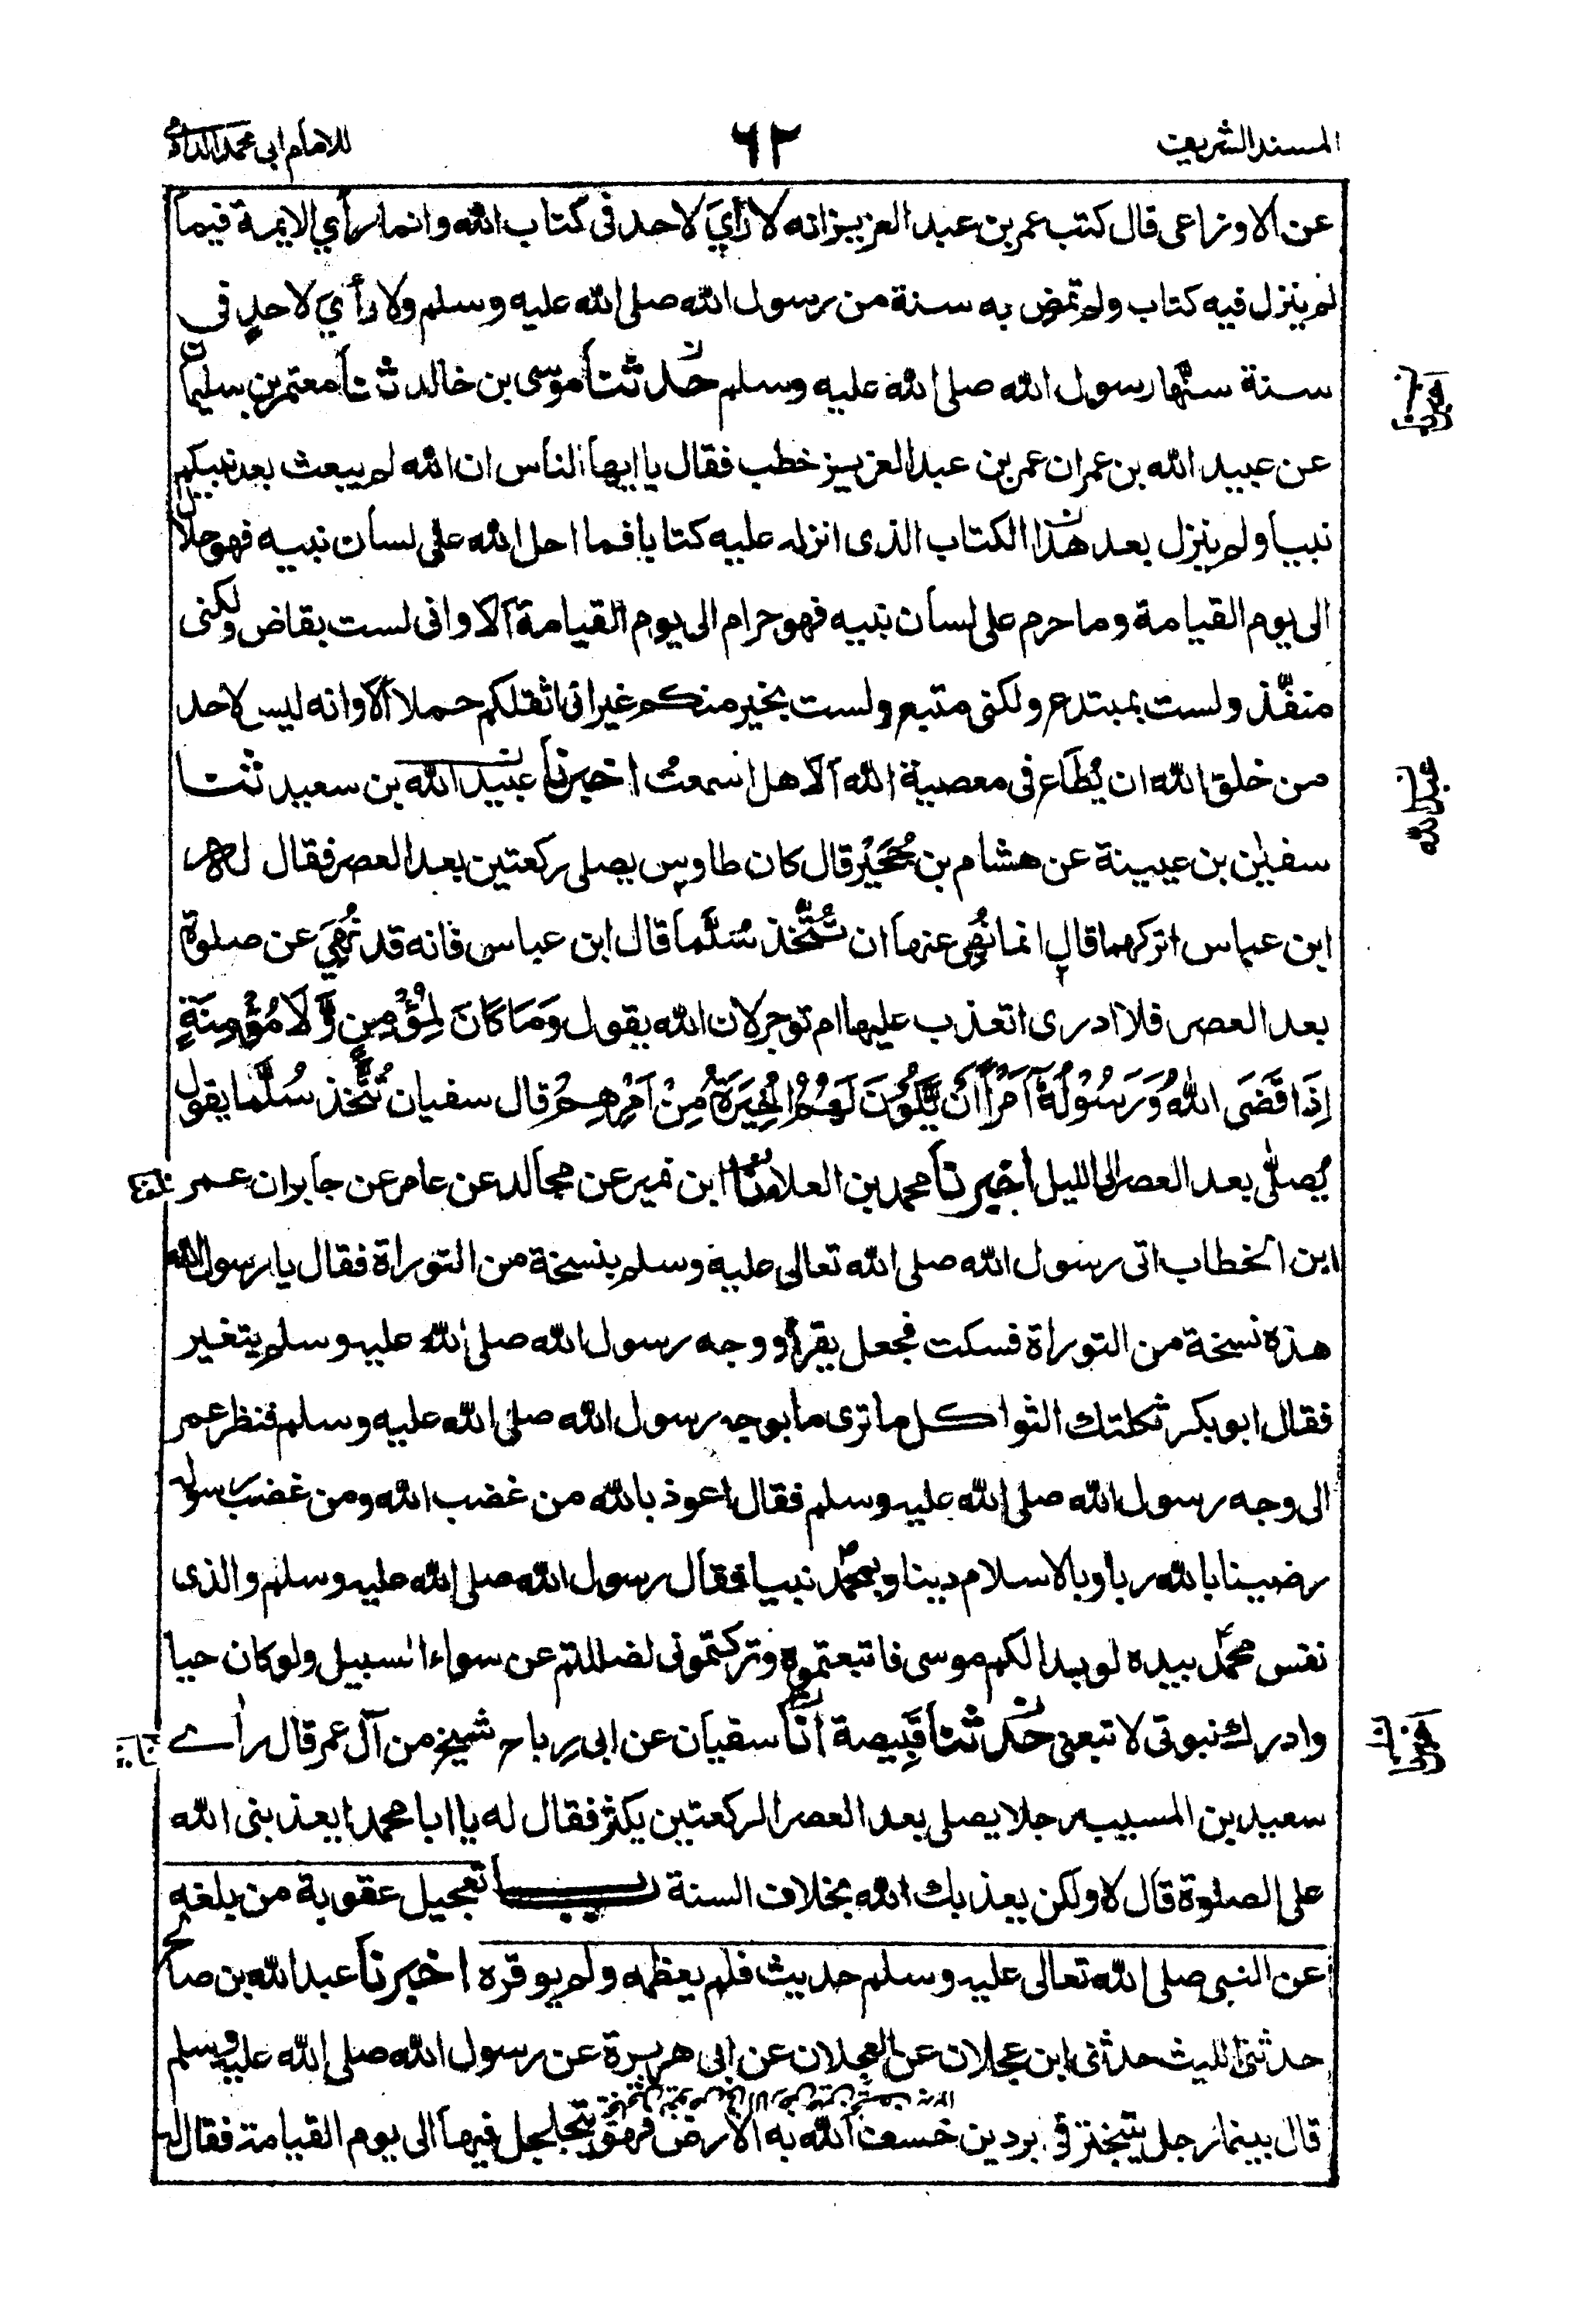 المسند الشريف
٦٢
للامام ابى محمد الدارمى
عن الاوزاعى قال كتب عمر بن عبد العزيز انه لا رأيَ لاحد فى كتاب الله وانما رأي الايمة فيما
لم ينزل فيه كتاب ولم تمض به سنة من رسول الله صلى الله عليه وسلم ولا رأيَ لاحدٍ فى
سنة سنّها رسول الله صلى الله عليه وسلم حدثنا موسى بن خالد ثنا معتمر بن سليمان
عن عبيد الله بن عمر ان عمر بن عبد العزيز خطب فقال يا ايها الناس ان الله لم يبعث بعد نبيكم
نبيا ولم ينزل بعد هذا الكتاب الذى انزله عليه كتابا فما احل الله على لسان نبيه فهو حلال
الى يوم القيامة وما حرم على لسان نبيه فهو حرام الى يوم القيامة ألا وانى لست بقاض ولكنى
منفّذ ولست بمبتدع ولكنى متبع ولست بخير منكم غير انى اثقلكم حملا ألا وانه ليس لاحد
من خلق الله ان يُطَاع فى معصية الله ألا هل اسمعتُ اخبرنا عبيد الله بن سعيد ثنا
سفيٰن بن عيينة عن هشام بن حُجَيْر قال كان طاوس يصلى ركعتين بعد العصر فقال له
ابن عباس اتركهما قال انما نُهِى عنها ان تُتَّخذ سُلَّما قال ابن عباس فانه قد نُهِيَ عن صلوة
بعد العصر فلا ادرى اتعذب عليها ام توجر لان الله يقول وَمَا كَانَ لِمُؤْمِنٍ وَّلَا مُؤْمِنَةٍ
اِذَا قَضَى اللهُ وَرَسُوْلُهٗٓ اَمْرًا اَنْ يَّكُوْنَ لَهُمُ الْخِيَرَةُ مِنْ اَمْرِهِمْ قال سفيان تُتَّخذ سُلَّما يقول
يُصلّٰى بعد العصر الى الليل اخبرنا محمد بن العلاء ثنا ابن نمير عن مجالد عن عامر عن جابر ان عمر
ابن الخطاب اتى رسول الله صلى الله تعالى عليه وسلم بنسخة من التوراة فقال يا رسول الله
هذه نسخة من التوراة فسكت فجعل يقرأ ووجه رسول الله صلى الله عليه وسلم يتغير
فقال ابو بكر ثكلتك الثواكل ما ترى ما بوجه رسول الله صلى الله عليه وسلم فنظر عمر
الى وجه رسول الله صلى الله عليه وسلم فقال اعوذ بالله من غضب الله ومن غضب رسوله
رضينا بالله ربا وبالاسلام دينا وبمحمد نبيا فقال رسول الله صلى الله عليه وسلم والذى
نفس محمد بيده لو بدا لكم موسى فاتبعتموه وتركتمونى لضللتم عن سواء السبيل ولو كان حيا
وادرك نبوتى لاتبعنى حدثنا قَبِيصة انا سفيان عن ابى رِباح شيخ من آل عمر قال رأے
سعيد بن المسيب رجلا يصلى بعد العصر الركعتين يكثر فقال له يا ابا محمد ايعذبنى الله
على الصلوة قال لا ولكن يعذبك الله بخلاف السنة باب تعجيل عقوبة من بلغه
عن النبى صلى الله تعالى عليه وسلم حديث فلم يعظمه ولم يوقره اخبرنا عبد الله بن صالح
حدثنا الليث حدثنى ابن عجلان عن العجلان عن ابى هريرة عن رسول الله صلى الله عليه وسلم
قال بينما رجل يتبختر فى بردين خسف الله به الارض فهو يتجلجل فيها الى يوم القيامة فقال له